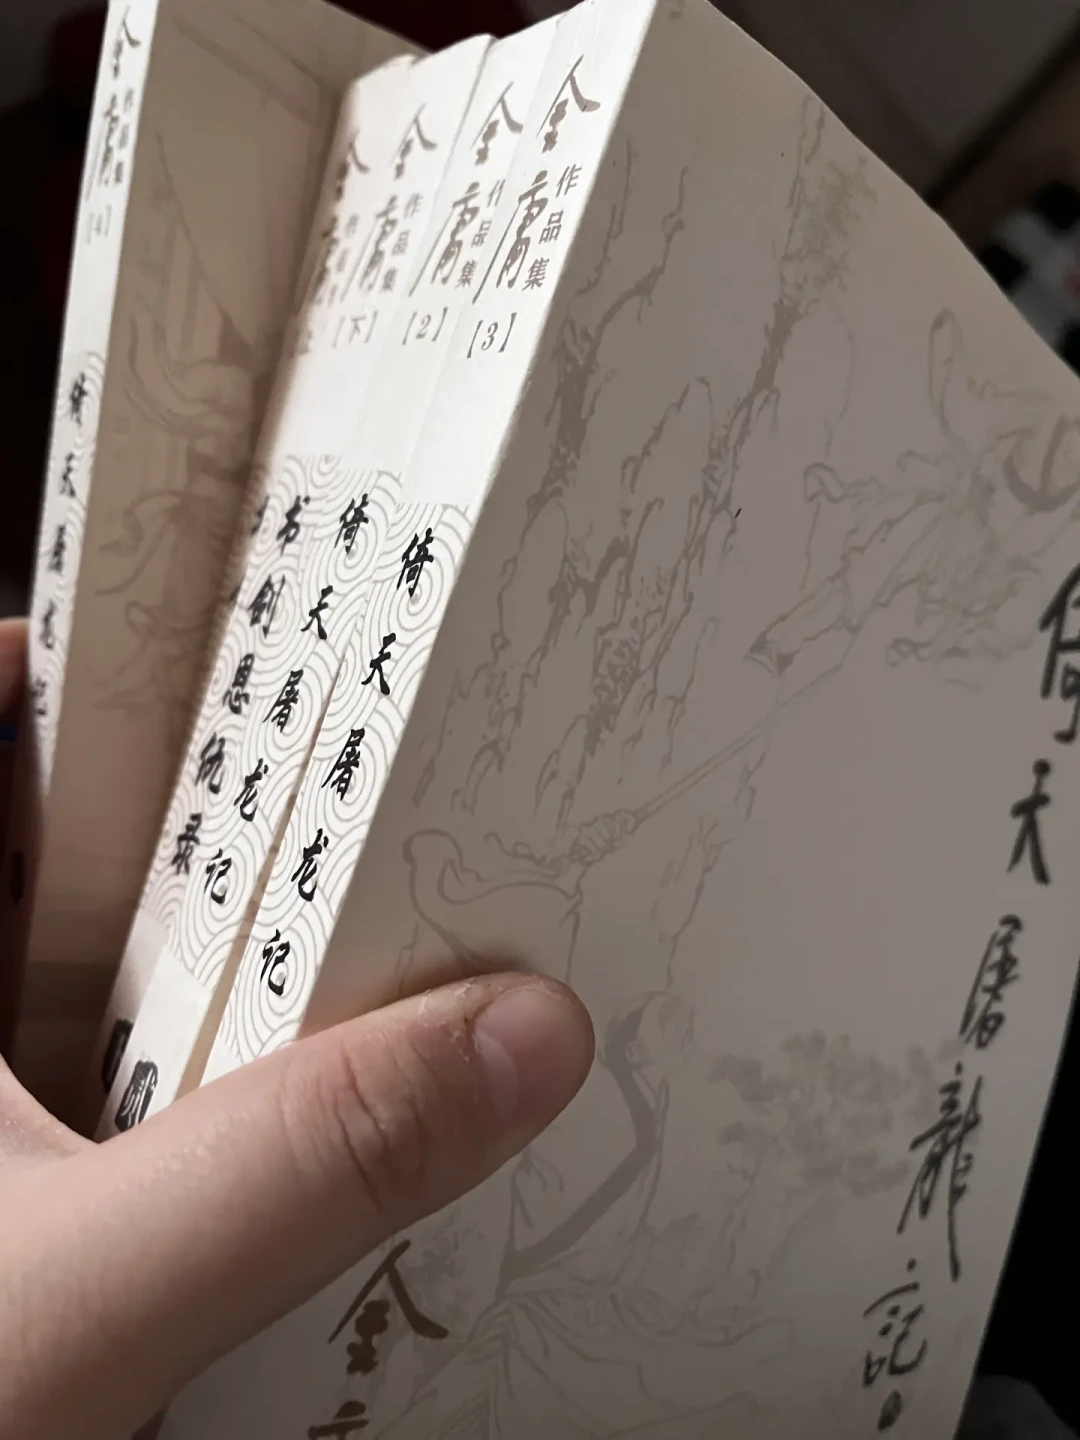 金庸作品集
[4]
倚天屠龙记
金庸作品集
金庸作品集
[下]
书剑恩仇录
金庸作品集
[2]
倚天屠龙记
金庸作品集
[3]
倚天屠龙记
倚天屠龍記
金